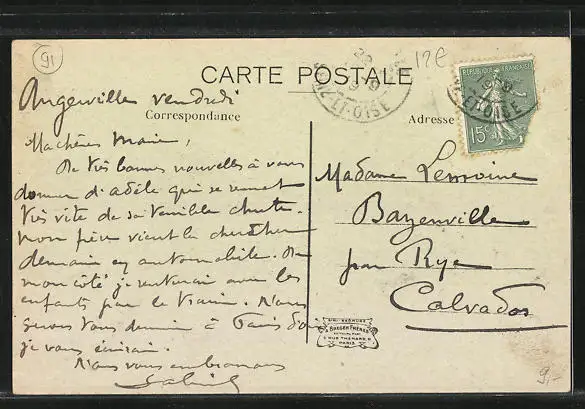 91
CARTE POSTALE
12€
Correspondance
Adresse
ET-OISE
ET-OISE
RÉPUBLIQUE FRANÇAISE
15c
Angerville vendredi
Ma chère Marie,
De très bonnes nouvelles à vous
donner d'adèle qui se remet
très vite de sa terrible chute.
Mon père vient la chercher
demain en automobile. De
mon côté je rentrerai avec les
enfants par le train. Nous
serons tous demain à Paris d'où
je vous écrirai.
Nous vous embrassons
Madame Lemoine
Bazenville
par Rye
Calvados
BAUER FRÈRES
RUE THÉNARD
PARIS
9,-